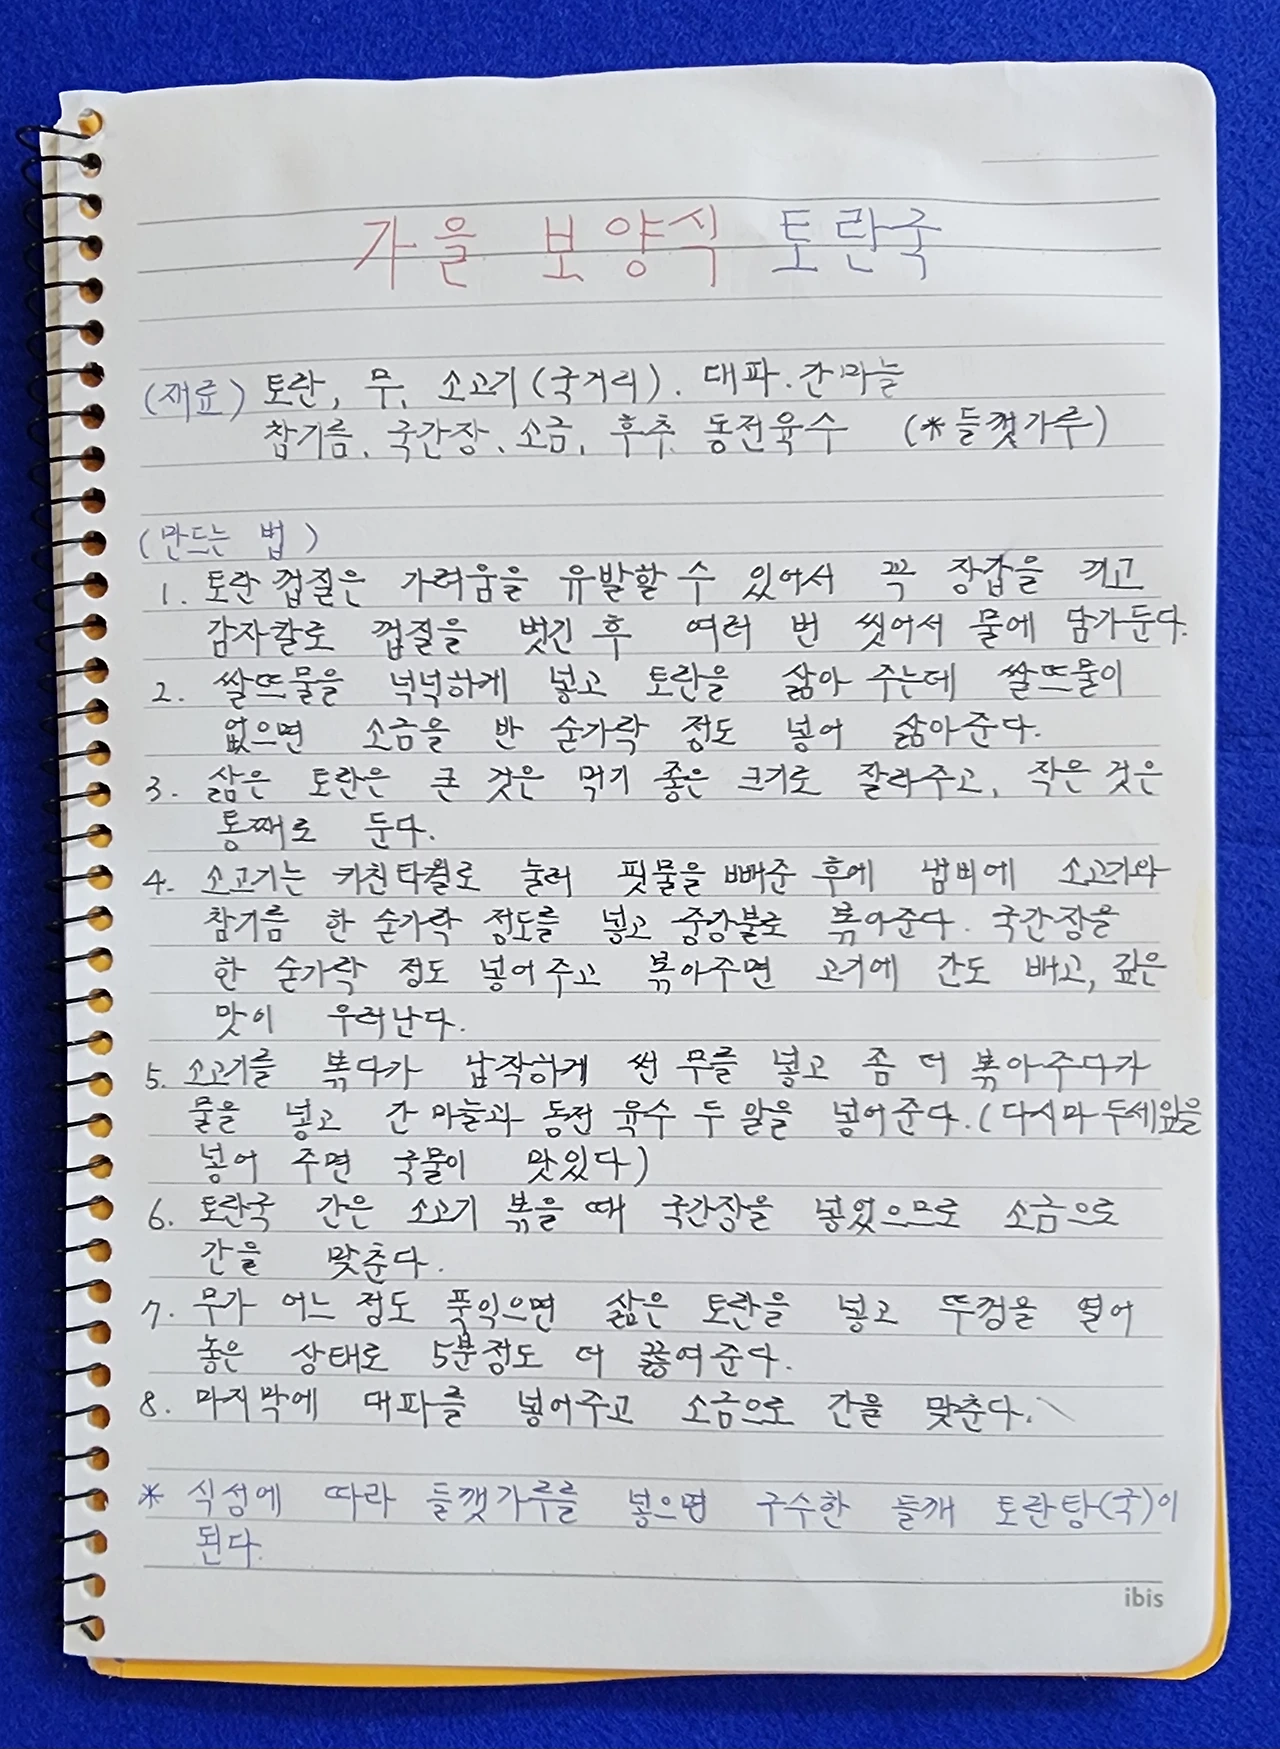 가을 보양식 토란국
(재료) 토란, 무, 소고기(국거리). 대파. 간마늘
참기름. 국간장. 소금. 후추. 동전육수 (*들깻가루)
(만드는 법)
1. 토란 껍질은 가려움을 유발할 수 있어서 꼭 장갑을 끼고
감자칼로 껍질을 벗긴 후 여러 번 씻어서 물에 담가둔다.
2. 쌀뜨물을 넉넉하게 넣고 토란을 삶아 주는데 쌀뜨물이
없으면 소금을 반 숟가락 정도 넣어 삶아준다.
3. 삶은 토란은 큰 것은 먹기 좋은 크기로 잘라주고, 작은 것은
통째로 둔다.
4. 소고기는 키친타월로 눌러 핏물을 빼준 후에 냄비에 소고기와
참기름 한 숟가락 정도를 넣고 중강불로 볶아준다. 국간장을
한 숟가락 정도 넣어주고 볶아주면 고기에 간도 배고, 깊은
맛이 우러난다.
5. 소고기를 볶다가 납작하게 썬 무를 넣고 좀 더 볶아주다가
물을 넣고 간 마늘과 동전 육수 두 알을 넣어준다. (다시마 두세잎을
넣어 주면 국물이 맛있다)
6. 토란국 간은 소고기 볶을 때 국간장을 넣었으므로 소금으로
간을 맞춘다.
7. 무가 어느 정도 푹익으면 삶은 토란을 넣고 뚜껑을 열어
놓은 상태로 5분정도 더 끓여준다.
8. 마지막에 대파를 넣어주고 소금으로 간을 맞춘다.
* 식성에 따라 들깻가루를 넣으면 구수한 들깨 토란탕(국)이
된다.
ibis